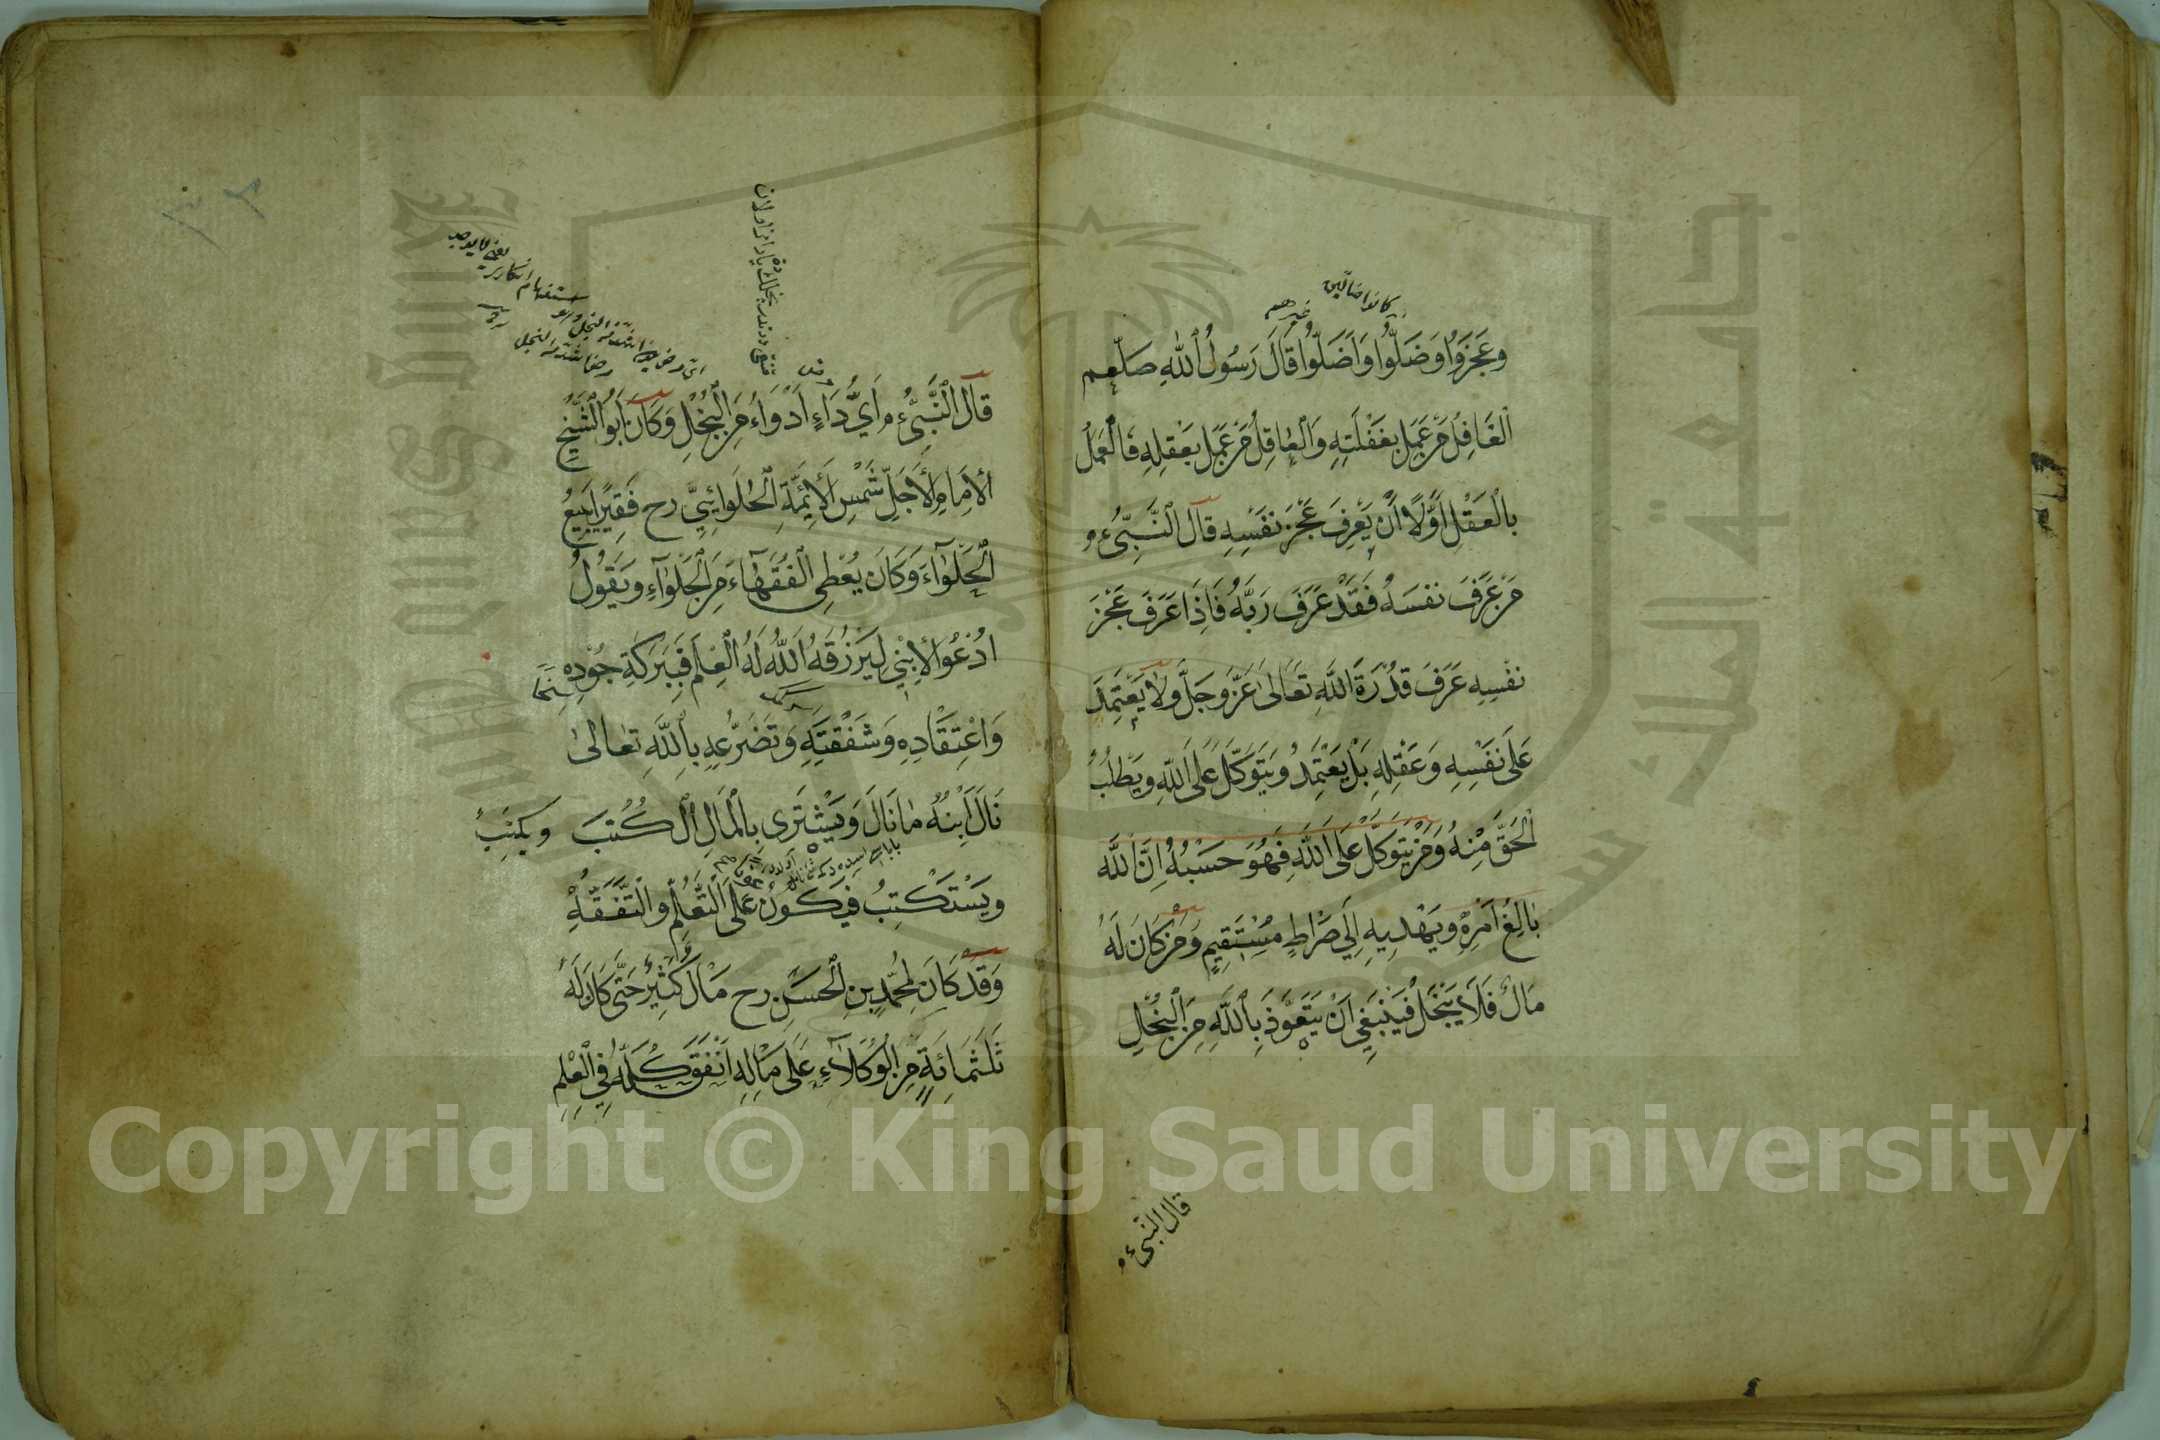 كانوا ضالين
غيرهم
وَعَجَزَوُا وَضَلُّوا وَاَضَلُّوا قَالَ رَسُولُ اللهِ صلعم
الغَافِلُ مَنْ عَمِلَ بِغَفْلَتِهِ وَالْعَاقِلُ مَنْ عَمِلَ بِعَقْلِهِ فَالْعَمَلُ
بِالْعَقْلِ اَوَّلًا اَنْ يَعْرِفَ عَجْزَ نَفْسِهِ قالَ النَّبِىُّ ءم
مَنْ عَرَفَ نَفْسَهُ فَقَدْ عَرَفَ رَبَّهُ فَاِذَا عَرَفَ عَجْزَ
نَفْسِهِ عَرَفَ قُدْرَةَ اللهِ تَعَالىٰ عَزَّ وَجَلَّ وَلَا يَعْتَمِدَ
عَلَى نَفْسِهِ وَعَقْلِهِ بَلْ يَعْتَمِدُ وَيَتَوَكَّلَ عَلَى اللهِ وَيَطْلُبُ
الْحَقَّ مِنْهُ وَمَنْ يَتَوَكَّلْ عَلَى اللهِ فَهُوَ حَسْبُهُ اِنَّ اللهَ
بَالِغُ اَمْرِهِ وَيَهْدِيهِ اِلَى صِرَاطٍ مُسْتَقِيمٍ وَمَنْ كَانَ لَهُ
مَالٌ فَلَا يَبْخَلْ فَيَنْبَغِي اَنْ يَتَعَوَّذَ بِاللهِ مِنَ الْبُخْلِ
قال النبى ءم
قالَ النَّبِىُّ ءم اَيُّ دَاءٍ اَدْوَاءُ مِنَ الْبُخْلِ وَكَانَ اَبُو الشَّيْخِ
الْاِمَامِ الْاَجَلِّ شَمْسِ الْاَئِمَّةِ الْحَلَوَائِيِّ رح فَقِيرًا يَبِيعُ
الْحَلْوَآءَ وَكَانَ يُعْطِى الْفُقَهَاءَ مِنَ الْحَلْوَآءِ وَيَقُولُ
ادْعُوا لِاِبْنِي لِيَرْزُقَهُ اللهُ لَهُ الْعِلْمَ فَبِبَرَكَةِ جُوْدِهِ
وَاعْتِقَادِهِ وَشَفْقَتِهِ وَتَضَرُّعِهِ بِاللهِ تعالىٰ
نَالَ اِبْنُهُ مَا نَالَ وَيَشْتَرِى بِالْمَالِ الْكُتُبَ وَيكتبُ
وَيَسْتَكْتِبُ فَيَكُونُ عَلَى التَّعَلُّمِ وَالتَّفَقُّهِ
وَقَدْ كَانَ لِمُحَمَّدِ بنِ الْحَسَنِ رح مَالٌ كَثِيرٌ حَتَّى كَانَ لَهُ
ثَلَثَمِائَةٍ مِنَ الْوُكَلَآءِ عَلَى مَالِهِ اَنْفَقَ كُلَّهُ فِي الْعِلْمِ
Copyright © King Saud University
جامعة الملك سعود
King Saud University